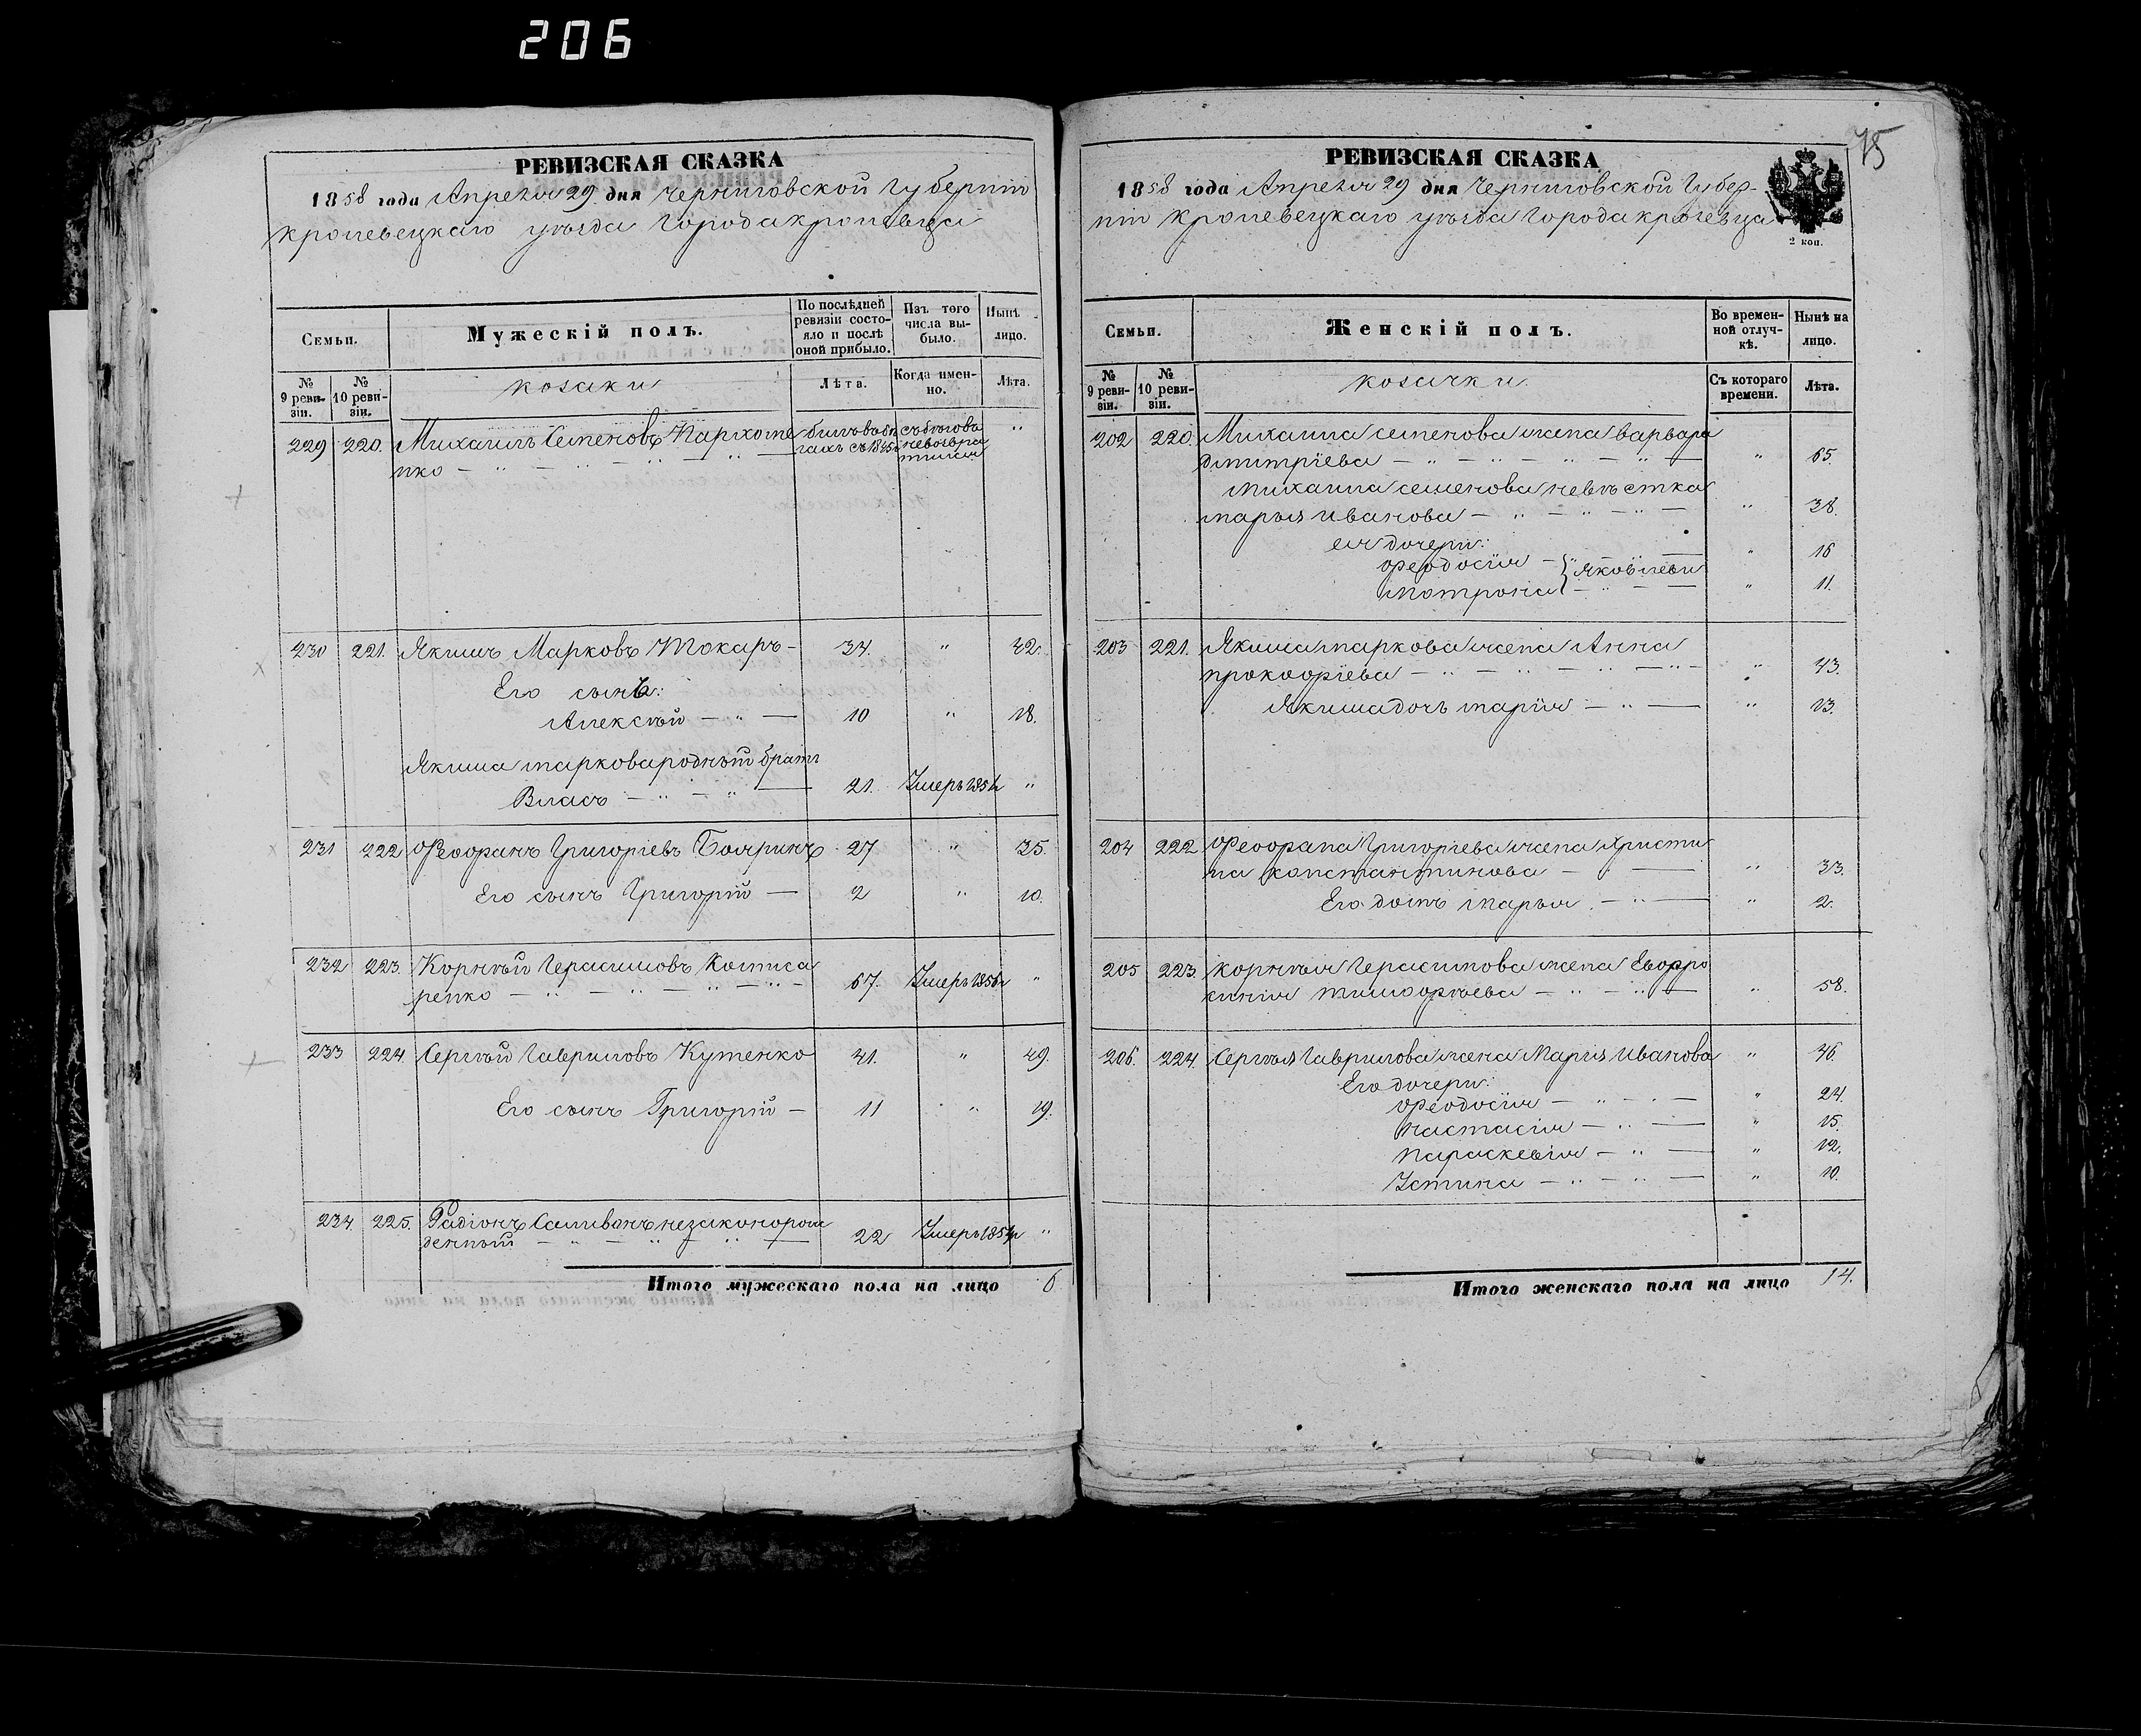 206
75
РЕВИЗСКАЯ СКАЗКА
1858 года Апреля 29 дня Черниговской Губерніи
Кролевецкаго уѣзда Города Кролевца
Семьи.
Мужескій полъ.
По послѣдней ревизіи состояло и послѣ оной прибыло.
Изъ того числа выбыло.
Нынѣ лицо.
№ 9 ревизіи.
№ 10 ревизіи.
козаки
Лѣта.
Когда именно.
Лѣта.
229 220. Михаилъ Семеновъ Пархоме былъ въ бѣгахъ съ 1845 съ бѣговъ "
нко — " — " — " — " —
230 221. Якимъ Марковъ Токаръ - 34. " 42.
Его сынъ:
Алексѣй — " — 10 " 18.
Якима Маркова родный братъ
Власъ — " — " — 21. Умеръ 185 "
231 222 Феофанъ Григоріевъ Бояринъ 27 " 35.
Его сынъ Григорій — 2 " 10.
232 223. Корнѣй Герасимовъ Комиса
ренко — " — " — " — " - 67. Умеръ 1856 "
233 224 Сергѣй Гавриловъ Кутенко 41. " 49.
Его сынъ Григорій — 11 " 19.
234. 225. Радіонъ Саливонъ незаконорож
денный — " — " — " — 22 Умеръ 185 "
Итого мужескаго пола на лицо 6
РЕВИЗСКАЯ СКАЗКА
1858 года Апреля 29 дня Черниговской Губер-
ніи Кролевецкаго уѣзда Города Кролевца
2 коп.
Семьи.
Женскій полъ.
Во временной отлучкѣ.
Нынѣ на лицо.
№ 9 ревизіи.
№ 10 ревизіи.
козачки
Съ котораго времени.
Лѣта.
202 220. Михаила Семенова жена Варвара
Дмитріева — " — " — " — " — " 65.
Михаила Семенова невѣстка
Марья Иванова — " — " — " — " 38.
ея дочери:
Феодосія — " 16
Яковлевы
Матрона — " 11.
203 221. Якима Маркова жена Анна
Прокофіева — " — " — " — " - " 43.
Якима дочь Марія — " — " 13.
204 222 Феофана Григоріева жена Христи
на Константинова — " — " 33.
Его дочь Марья — " — " 2.
205 223 Корнѣя Герасимова жена Евфро
синія Тимофѣева — " — " — " 58.
206. 224. Сергѣя Гаврилова жена Марія Иванова " 46
Его дочери:
Феодосія — " — " 24.
Настасія — " — " 15.
Параскевія — " — " 12.
Устина — " — " — " 10.
Итого женскаго пола на лицо 14.